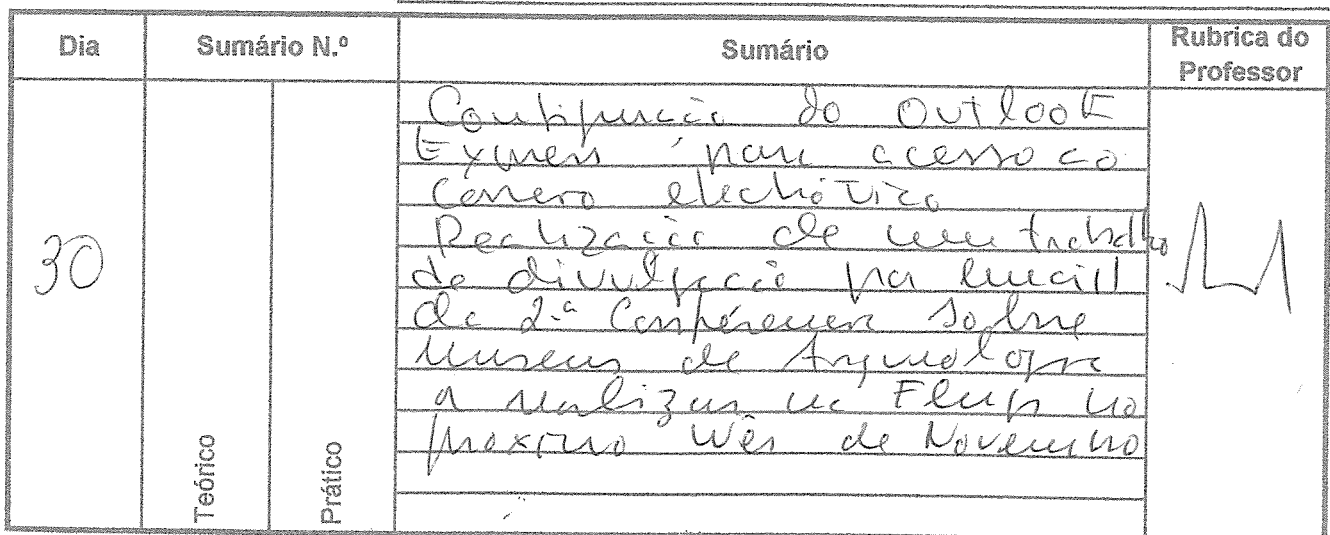 Dia Sumário N.º Sumário Rubrica do Professor
30
Teórico
Prático
Configuração do Outlook
Express para acesso ao
correio electrónico
Realização de um trabalho
de divulgação por email
da 2.ª Conferência sobre
Museus de Arqueologia
a realizar na Flup no
próximo mês de Novembro